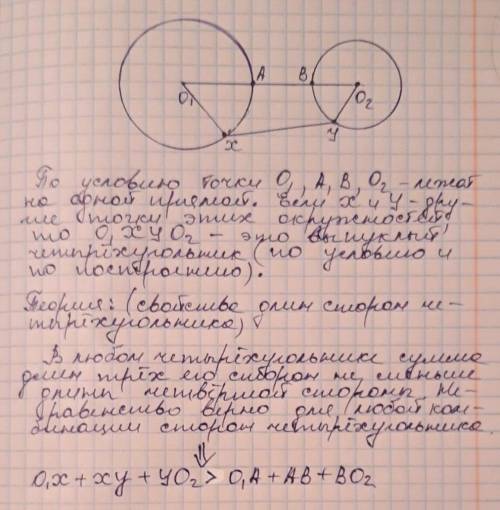 A B
O₁ O₂
X У
По условию точки O₁, A, B, O₂ – лежат
на одной прямой. Если X и У – дру-
гие точки этих окружностей,
то O₁XУO₂ – это выпуклый
четырёхугольник (по условию и
по построению).
Теория: (свойства длин сторон че-
тырёхугольника)
В любом четырёхугольнике сумма
длин трёх его сторон не меньше
длины четвёртой стороны. Не-
равенство верно для любой ком-
бинации сторон четырёхугольника.
⇓
O₁X + XУ + УO₂ > O₁A + AB + BO₂